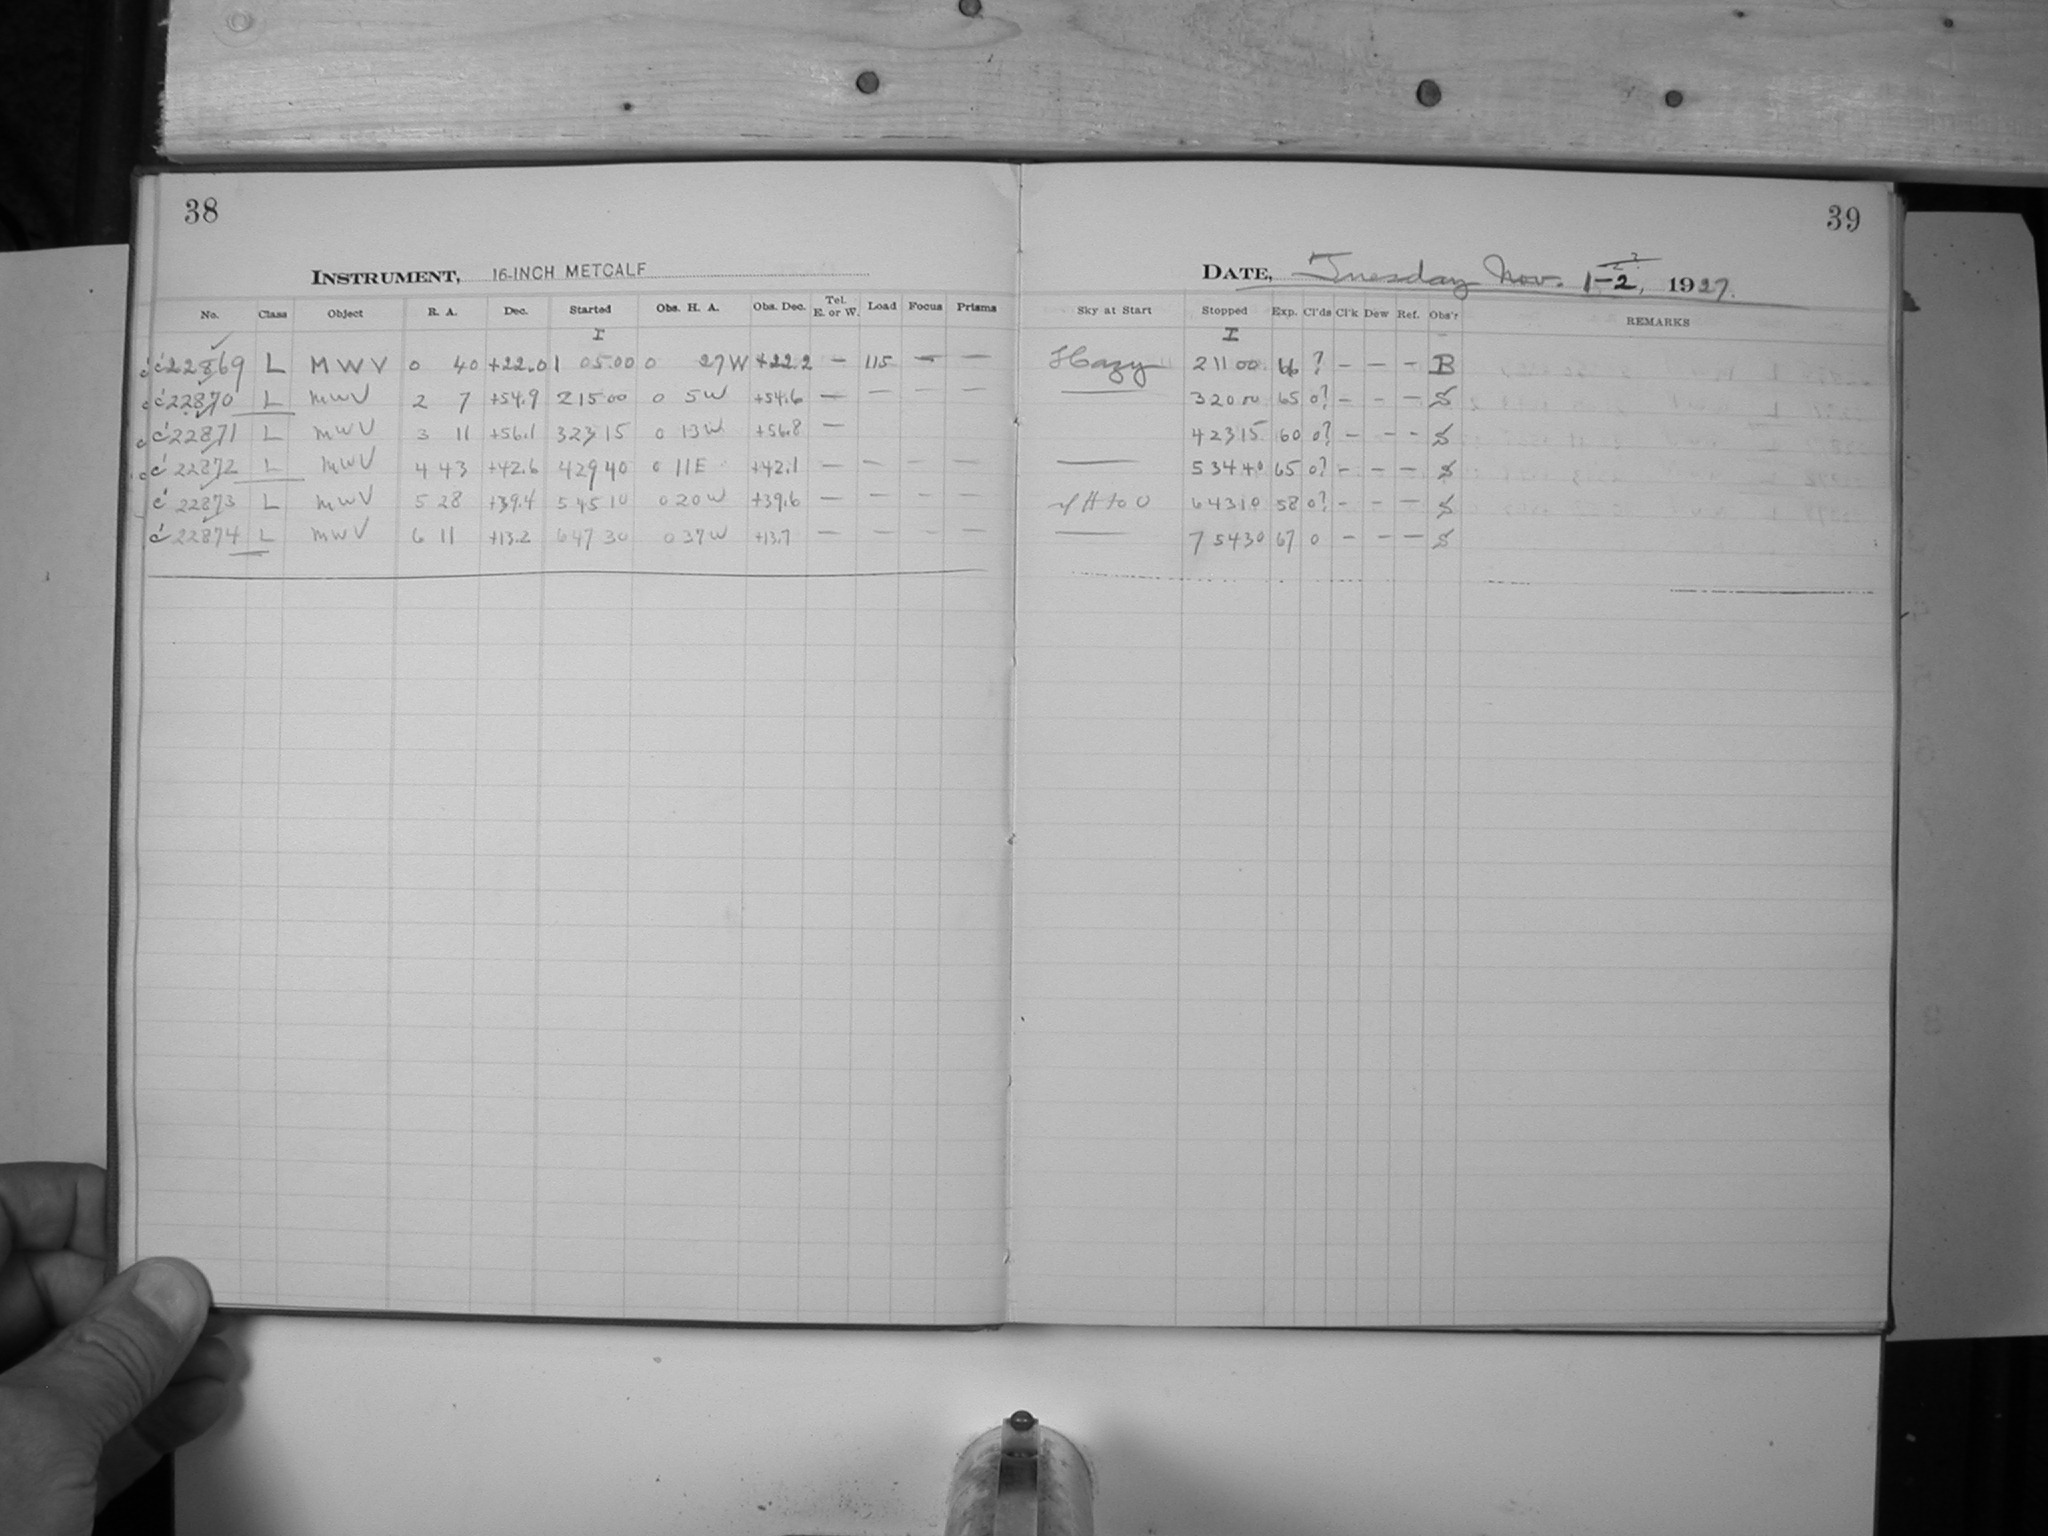 38
39
INSTRUMENT, 16-INCH METCALF
DATE, Tuesday Nov. 1-2, 1927.
No. Class Object R. A. Dec. Started Obs. H. A. Obs. Dec. Tel. E. or W. Load Focus Prisms Sky at Start Stopped Exp. Cl'ds Cl'k Dew Ref. Obs'r REMARKS
I I
22869 L MWV 0 40 +22.0 1 05.00 0 27W +22.2 — 115 — — Hazy 2 11 00 66 ? — — — B
22870 L MWV 2 7 +54.9 2 15 00 0 5W +54.6 — — — — —— 3 20 00 65 0? — — — S
22871 L MWV 3 11 +56.1 3 23 15 0 13W +56.8 — 4 23 15 60 0? — — — S
22872 L MWV 4 43 +42.6 4 29 40 0 11E +42.1 — — — — —— 5 34 40 65 0? — — — S
22873 L MWV 5 28 +39.4 5 45 10 0 20W +39.6 — — — — H to 0 6 43 10 58 0? — — — S
22874 L MWV 6 11 +13.2 6 47 30 0 37W +13.7 — — — — —— 7 54 30 67 0 — — — S